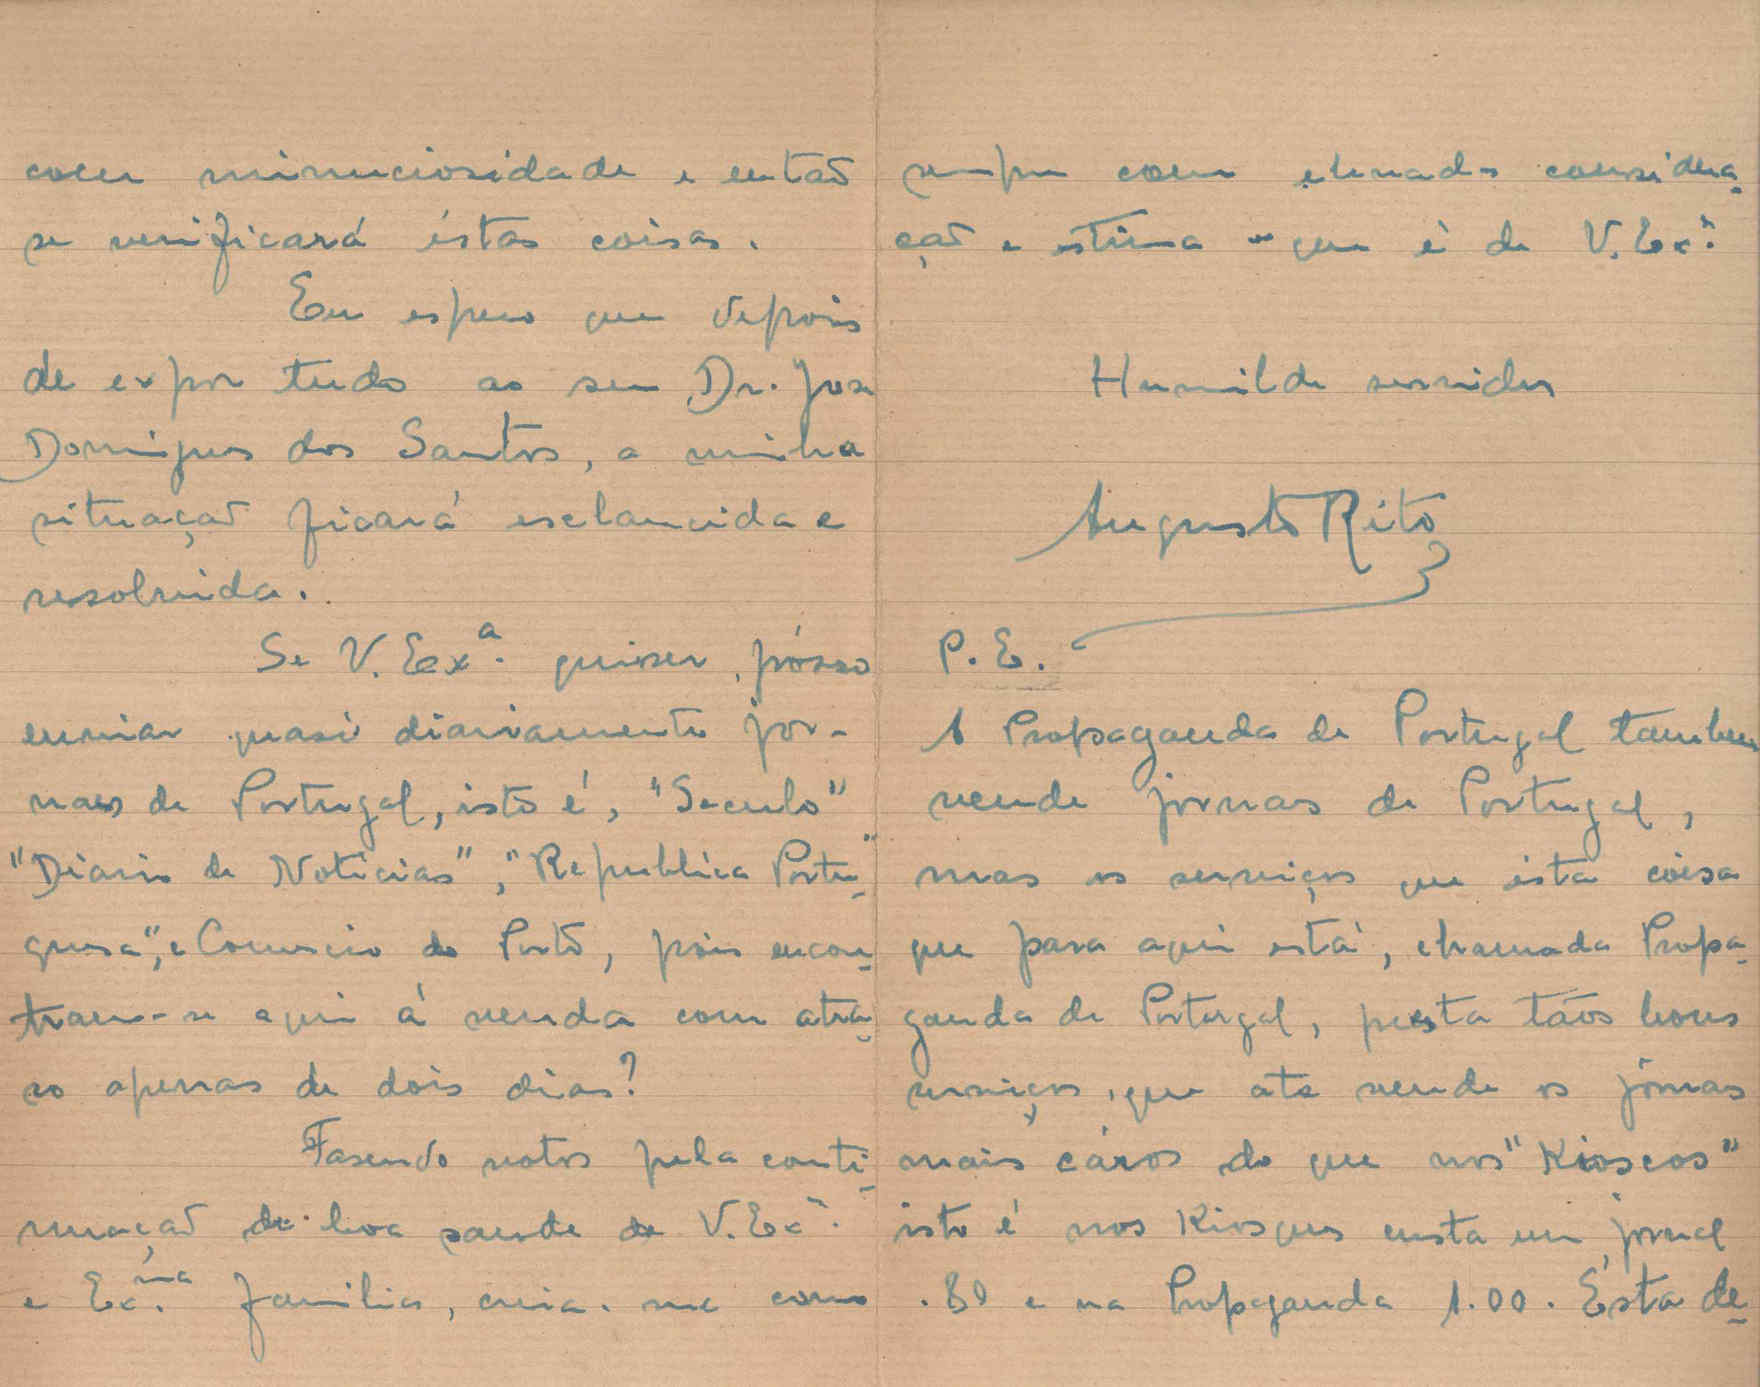 com minuciosidade e então
se verificará éstas coisas.
Eu espero que depois
de expor tudo ao seu Dr. José
Domigues dos Santos, a minha
situação ficará esclarecida e
resolvida.
Se V. Exª. quiser, pósso
enviar quasi diariamente jor-
naes de Portugal, isto é, "Seculo"
"Diario de Noticias", "Republica Portu-
guesa", e Comercio do Porto, pois encon-
tram-se aqui á venda com atra-
so apenas de dois dias?
Fasendo votos pela conti-
nuação de boa saude de V. Exª.
e Ex.ma familia, creia-me como
sempre com elevada considera-
ção e estima o que é de V. Exª.
Humilde servidor
Augusto Rito
P. E.
A Propaganda de Portugal tambem
vende jornas de Portugal,
mas os serviços que esta coisa
que para aqui está, chamada Propa-
ganda de Portugal, presta tãos bons
serviços, que até vende os jornas
mais cáros do que nos "Kioscos"
isto é nos Kiosques custa um jornal
.80 e na Propaganda 1.00. Ésta de-